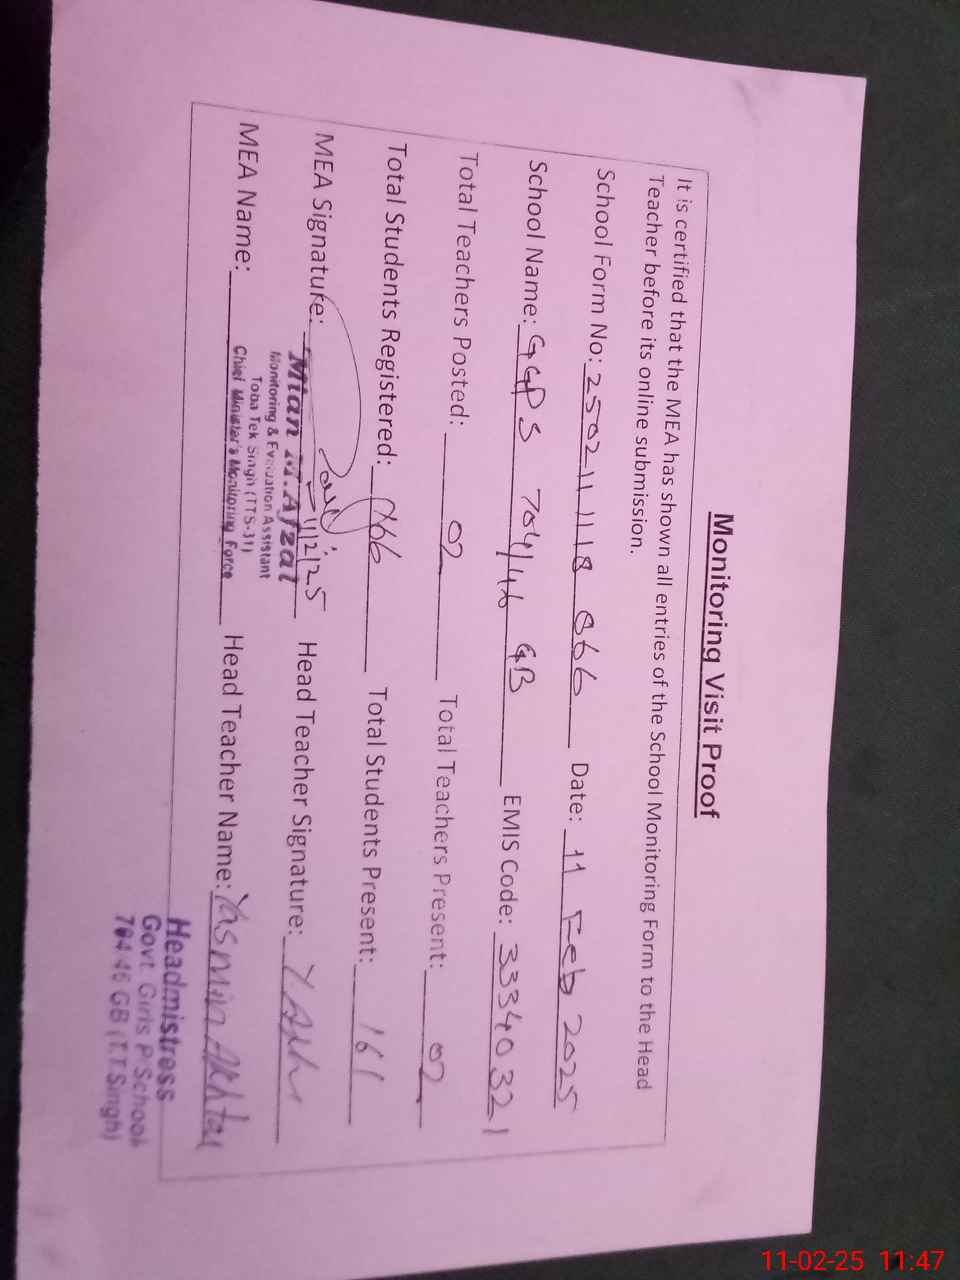 Monitoring Visit Proof
It is certified that the MEA has shown all entries of the School Monitoring Form to the Head
Teacher before its online submission.
School Form No: 250211118 866 Date: 11 Feb 2025
School Name: GGPS 704/46 GB EMIS Code: 33340321
Total Teachers Posted: 02 Total Teachers Present: 02
Total Students Registered: 166 Total Students Present: 161
MEA Signature: 11/2/25 Head Teacher Signature:
Mian M.Afzal
Monitoring & Evaluation Assistant
Toba Tek Singh (TTS-31)
Chief Minister's Monitoring Force
MEA Name: Head Teacher Name: Yasmin Akhtar
Headmistress
Govt. Girls P School
704-46 GB (T.T.Singh)
11-02-25 11:47